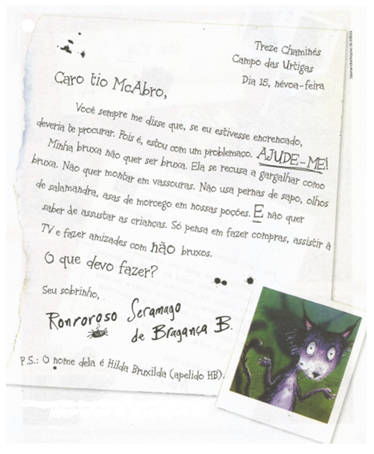 Treze Chaminés
Campo das Urtigas
Dia 15, névoa-feira
Caro tio McAbro,
Você sempre me disse que, se eu estivesse encrencado,
deveria te procurar. Pois é, estou com um problemaço. AJUDE-ME!
Minha bruxa não quer ser bruxa. Ela se recusa a gargalhar como
bruxa. Não quer montar em vassouras. Não usa pernas de sapo, olhos
de salamandra, asas de morcego em nossas poções. E não quer
saber de assustar as crianças. Só pensa em fazer compras, assistir à
TV e fazer amizades com não bruxos.
O que devo fazer?
Seu sobrinho,
Ronroroso Scramago
de Bragança B.
P.S.: O nome dela é Hilda Bruxilda (apelido HB).